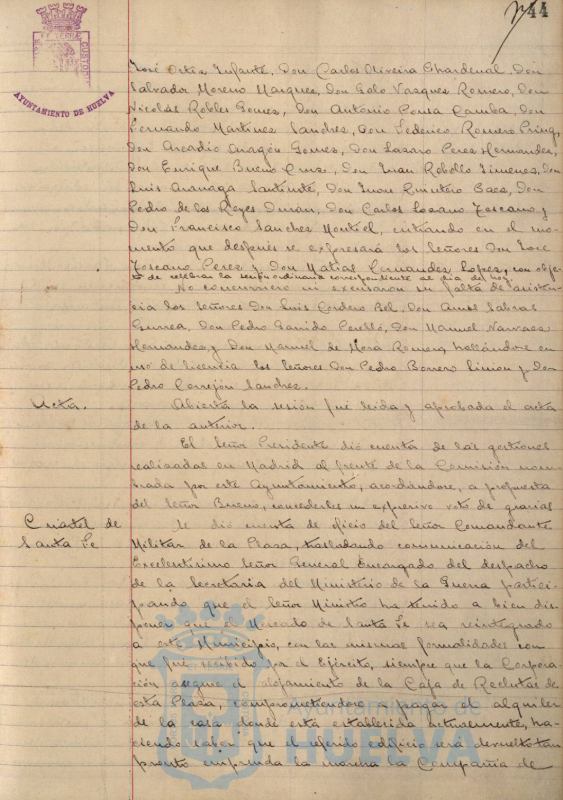 44
AYUNTAMIENTO DE HUELVA
José Ortiz Infante, Don Carlos Oliveira Chardenal, Don
Salvador Moreno Marquez, Don Galo Vazquez Romero, Don
Nicolás Robles Gomez, Don Antonio Pousa Camba, Don
Fernando Martinez Sanchez, Don Federico Romero
Don Arcadio Aragón Gomez, Don Lazaro Perez Hernandez,
Don Enrique Bueno Cruz, Don Juan Rebollo Jimenez, Don
Luis Don Juan Quintero Baez, Don
Pedro de los Reyes Durán, Don Carlos Lozano Toscano y
Don Francisco Sanchez Montiel, entrando en el mo-
mento que después se expresará los señores Don José
Toscano Perez y Don Matias Fernandez Lopez, con obje-
to de celebrar la sesión ordinaria correspondiente al día de hoy.
No concurriero ni excusaron su falta de asisten-
cia los señores Don Luis Cordero Bel, Don
Gurrea, Don Pedro Garrido Perelló, Don Manuel Narvaez
Hernandez y Don Manuel de Mora Romero, hallándose en
uso de licencia los señores Don Pedro Borrero Limon y Don
Pedro Cerrejón Sanchez.
Acta. Abierta la sesión fué leida y aprobada el acta
de la anterior.
El señor Presidente dió cuenta de las gestiones
realizadas en Madrid al frente de la Comisión nom-
brada por este Ayuntamiento, acordándose, a propuesta
del señor Bueno, concederles un expresivo voto de gracias
Cuartel de Se dió cuenta de oficio del señor Comandante
Santa Fe Militar de la Plaza, trasladando comunicación del
Excelentisimo señor General Encargado del despacho
de la Secretaria del Ministerio de la Guerra partici-
pando que el señor Ministro ha tenido a bien dis-
poner que el Mercado de Santa Fe sea reintegrado
a este Municipio, con las mismas formalidades con
que fué recibido por el Ejército, siempre que la Corpora-
ción asegure el alojamiento de la Caja de Reclutas de
esta Plaza, comprometiendose a pagar el alquiler
de la casa donde está establecida actualmente, ha-
ciendo saber que el referido edificio será devuelto tan
pronto emprenda la marcha la Compañia de
Ayuntamiento de
HUELVA